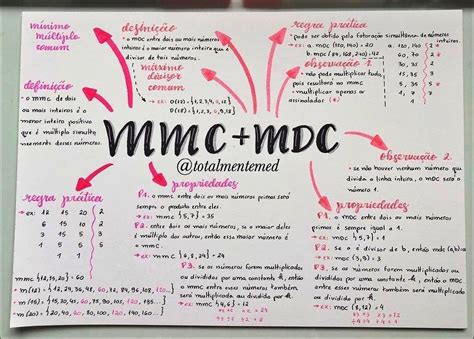 mínimo
múltiplo
comum
definição
o mmc de dois
ou mais inteiros é o
menor inteiro positivo
que é múltiplo simulta-
neamente desses números
definição
o mdc entre dois ou mais números
inteiros é o maior número inteiro que é
divisor de tais números.
máximo
divisor
comum
→ ex:
D(12) = {1,2,3,4,6,12}
regra prática
pode ser obtido pela fatoração simultânea de números
→ ex: a. mdc (120, 140) = 20
b. mdc (84, 168, 240)
a. 120, 140 | 2 *
60, 70 | 2 *
30, 35 | 2
15, 35 | 3
5, 35 | 5 *
1, 7 | 7
1, 1
observação 1
não pode multiplicar tudo,
pois resultará no mmc
multiplicar apenas os
assinalados (*)
MMC+MDC
@totalmentemed
observação 2
se não houver nenhum número que
divida a linha inteira, o mdc será o
número 1.
regra prática
→ ex: 18 15 20 | 2
6 15 10 | 2
3 15 5 | 3
1 5 5 | 5
1 1 1
mmc {12,15,20} = 60
m (12) = {12, 24, 36, 48, 60, 72, 84, 96, 108, 120...}
m (15) = {15, 30, 45, 60, 75, 90, 105, 120, 135...}
m (20) = {20, 40, 60, 80, 100, 120, 140, 160...}
propriedades
P1. o mmc entre dois ou mais números primos será
sempre o produto entre eles.
→ ex: mmc {5,7} = 35
P2. entre dois ou mais números, se o maior deles
é múltiplo dos outros, então esse maior número é
o mmc.
→ ex: mmc {6,8,24} = 24
P3. se os números forem multiplicados
ou divididos por uma constante k, então o mmc
entre esses números também será multiplicado
ou dividido por k.
propriedades
P1. o mdc entre dois ou mais números
primos é sempre igual a 1.
→ ex: mdc {5,7} = 1
P2. se a é divisor de b, então mdc (a,b)=a
→ ex: mdc (3,9) = 3
P3. se os números forem multiplicados ou
divididos por uma constante k, então o mdc entre
esses números também será multiplicado ou
dividido por k.
→ ex: mdc (8,12) = 4